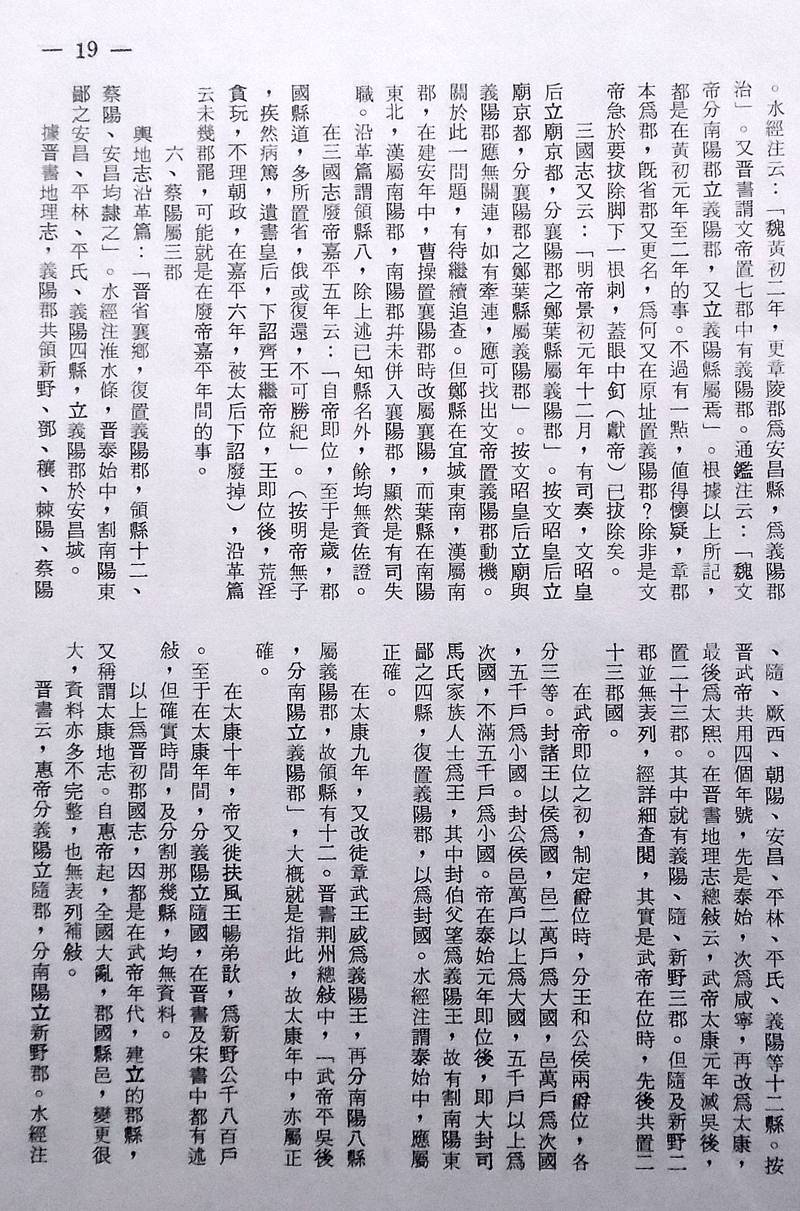 — 19 —
。水經注云：「魏黃初二年，更章陵郡爲安昌縣，爲義陽郡
治」。又晉書謂文帝置七郡中有義陽郡。通鑑注云：「魏文
帝分南陽郡立義陽郡，又立義陽縣屬焉」。根據以上所記，
都是在黃初元年至二年的事。不過有一點，值得懷疑，章郡
本爲郡，旣省郡又更名，爲何又在原址置義陽郡？除非是文
帝急於要拔除脚下一根刺，蓋眼中釘（獻帝）已拔除矣。
三國志又云：「明帝景初元年十二月，有司奏，文昭皇
后立廟京都，分襄陽郡之鄭葉縣屬義陽郡」。按文昭皇后立
廟京都，分襄陽郡之鄭葉縣屬義陽郡」。按文昭皇后立廟與
義陽郡應無關連，如有牽連，應可找出文帝置義陽郡動機。
關於此一問題，有待繼續追查。但鄭縣在宜城東南，漢屬南
郡，在建安年中，曹操置襄陽郡時改屬襄陽，而葉縣在南陽
東北，漢屬南陽郡，南陽郡幷未併入襄陽郡，顯然是有司失
職。沿革篇謂領縣八，除上述已知縣名外，餘均無資佐證。
在三國志廢帝嘉平五年云：「自帝即位，至于是歲，郡
國縣道，多所置省，俄或復還，不可勝紀」。（按明帝無子
，疾然病篤，遺書皇后，下詔齊王繼帝位，王即位後，荒淫
貪玩，不理朝政，在嘉平六年，被太后下詔廢掉），沿革篇
云未幾郡罷，可能就是在廢帝嘉平年間的事。
六、蔡陽屬三郡
輿地志沿革篇：「晉省襄鄉，復置義陽郡，領縣十二、
蔡陽、安昌均隸之」。水經注淮水條，晉泰始中，割南陽東
鄙之安昌、平林、平氏、義陽四縣，立義陽郡於安昌城。
據晉書地理志，義陽郡共領新野、鄧、穰、棘陽、蔡陽
、隨、厥西、朝陽、安昌、平林、平氏、義陽等十二縣。按
晉武帝共用四個年號，先是泰始，次爲咸寧，再改爲太康，
最後爲太熙。在晉書地理志總敍云，武帝太康元年滅吳後，
置二十三郡。其中就有義陽、隨、新野三郡。但隨及新野二
郡並無表列，經詳細查閱，其實是武帝在位時，先後共置二
十三郡國。
在武帝即位之初，制定爵位時，分王和公侯兩爵位，各
分三等。封諸王以侯爲國，邑二萬戶爲大國，邑萬戶爲次國
，五千戶爲小國。封公侯邑萬戶以上爲大國，五千戶以上爲
次國，不滿五千戶爲小國。帝在泰始元年即位後，即大封司
馬氏家族人士爲王，其中封伯父望爲義陽王，故有割南陽東
鄙之四縣，復置義陽郡，以爲封國。水經注謂泰始中，應屬
正確。
在太康九年，又改徒章武王威爲義陽王，再分南陽八縣
屬義陽郡，故領縣有十二。晉書荆州總敍中，「武帝平吳後
，分南陽立義陽郡」，大概就是指此，故太康年中，亦屬正
確。
在太康十年，帝又徙扶風王暢弟歆，爲新野公千八百戶
。至于在太康年間，分義陽立隨國，在晉書及宋書中都有述
敍，但確實時間，及分割那幾縣，均無資料。
以上爲晉初郡國志，因都是在武帝年代，建立的郡縣，
又稱謂太康地志。自惠帝起，全國大亂，郡國縣邑，變更很
大，資料亦多不完整，也無表列補敍。
晉書云，惠帝分義陽立隨郡，分南陽立新野郡。水經注